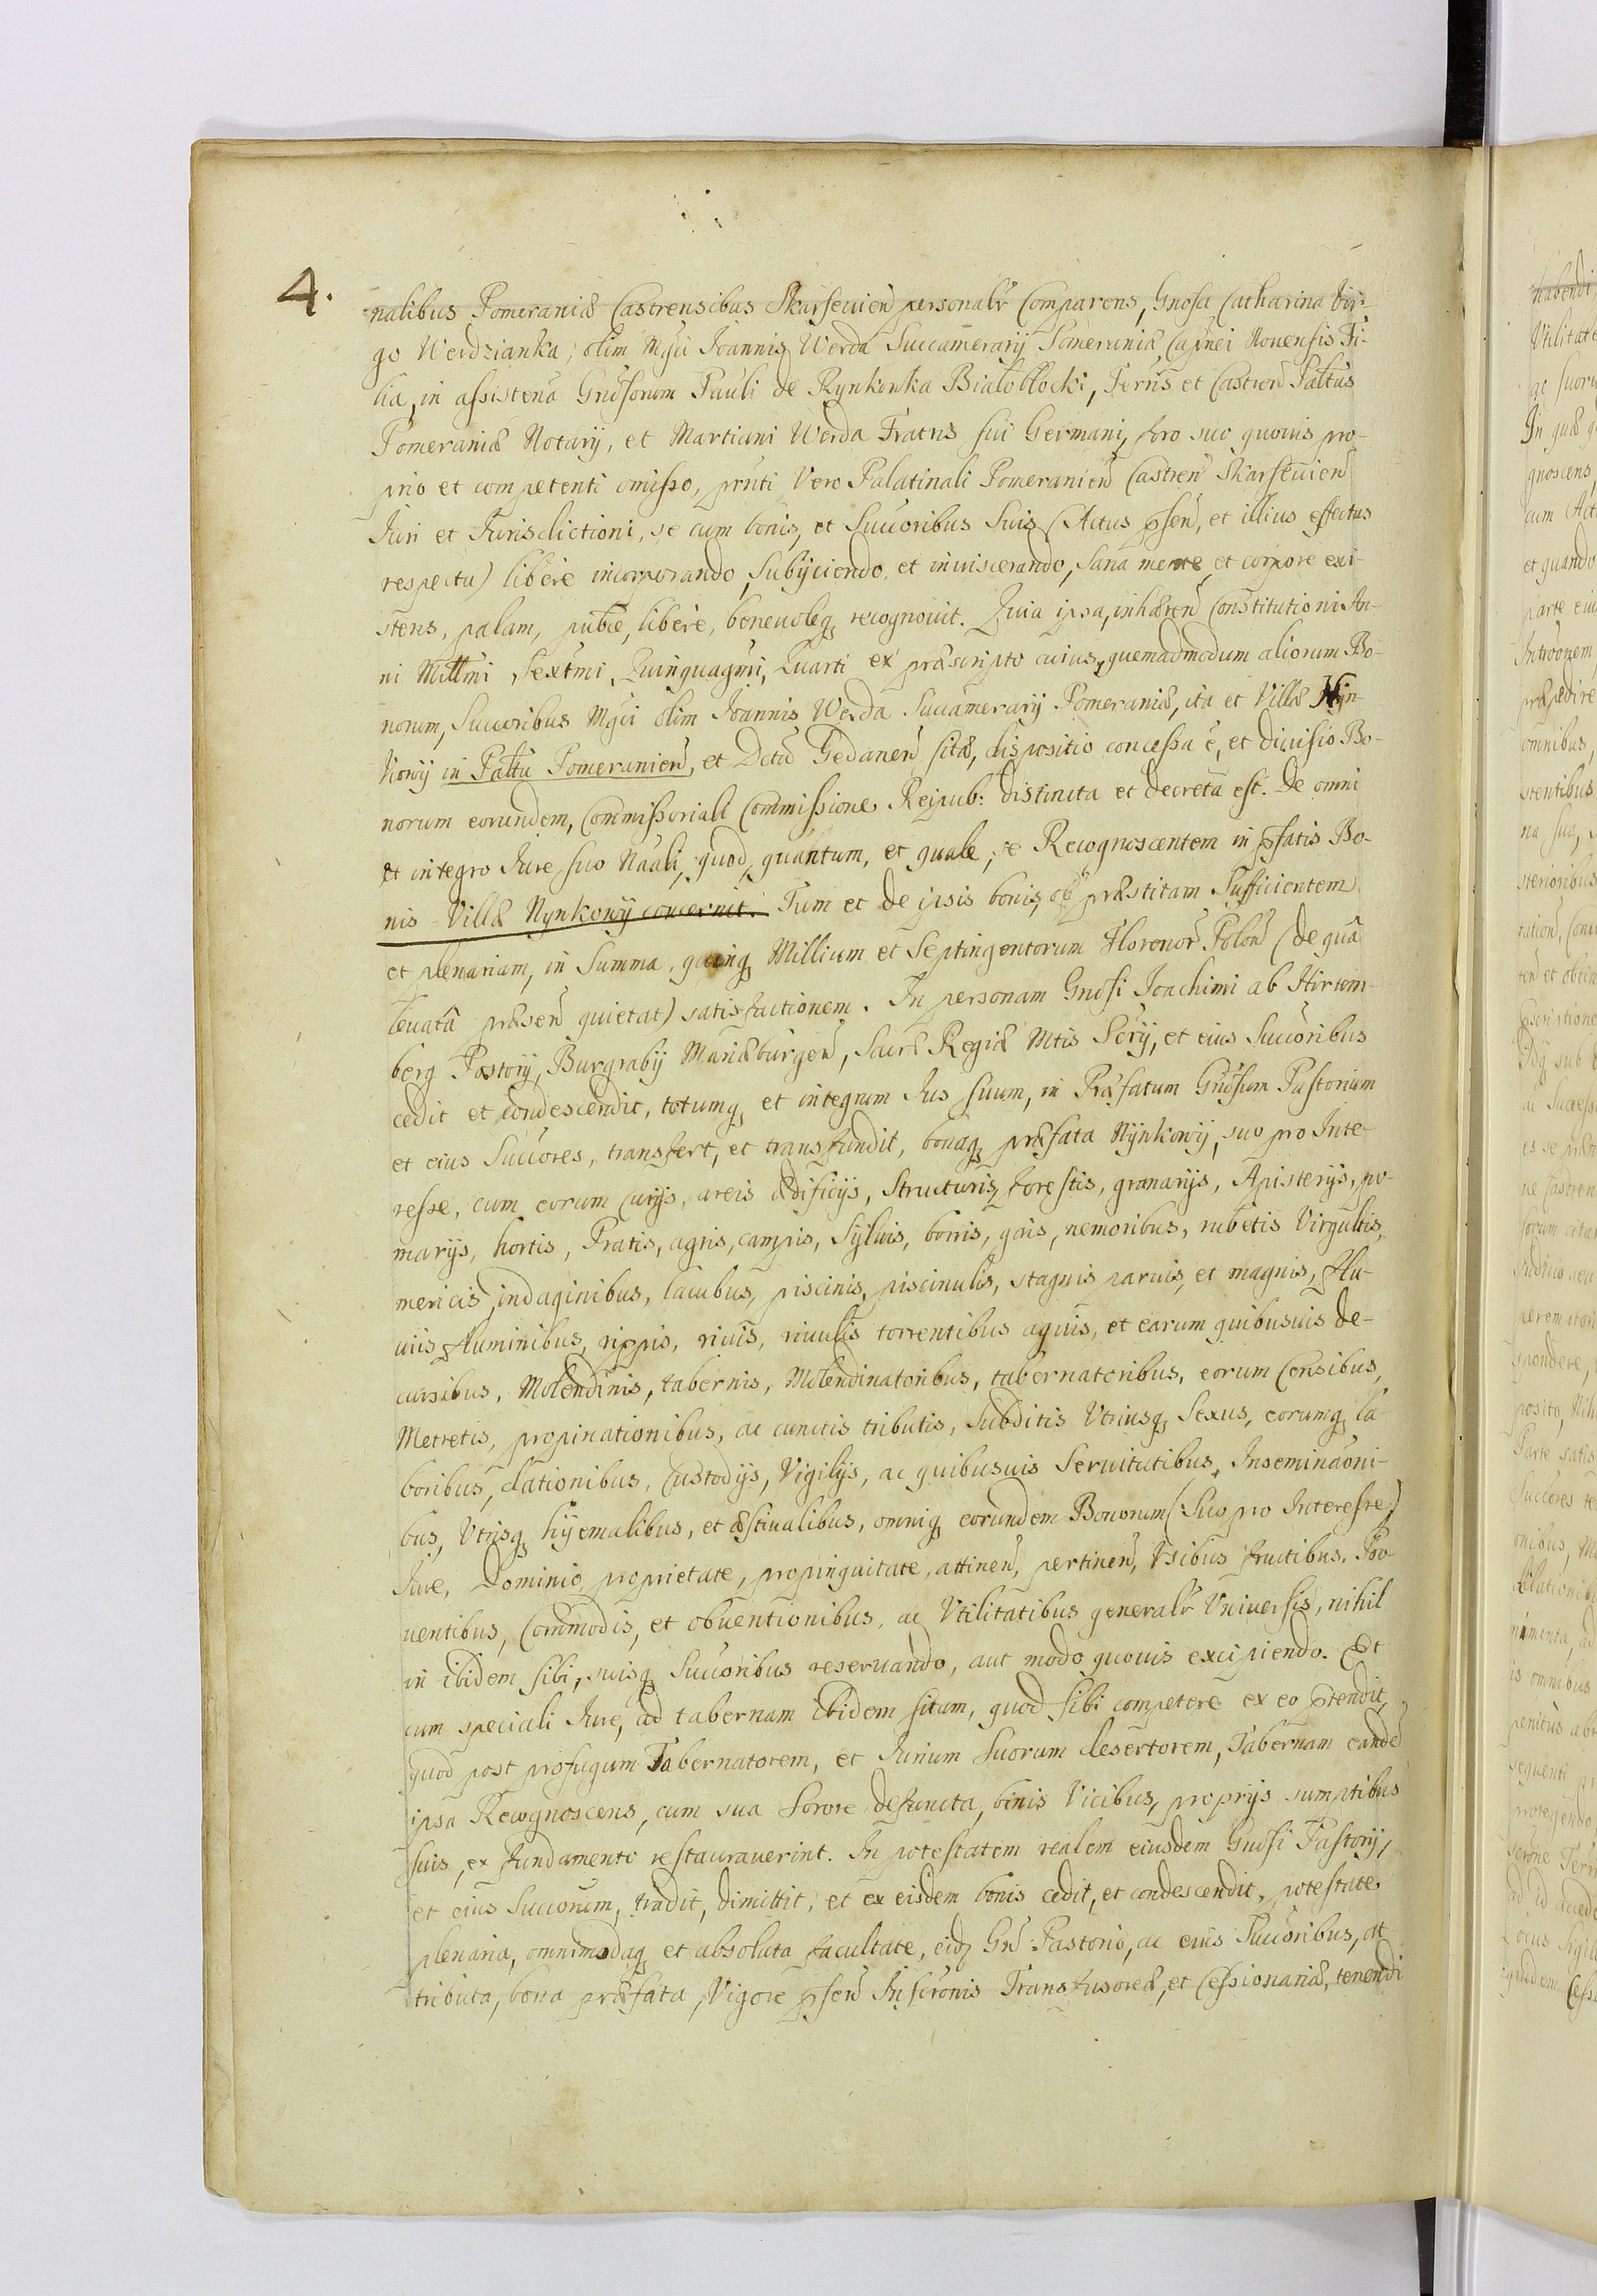 4.
nalibus Pomeraniæ Castrensibus Skarsevien̄ personalr̄ Comparens, Gnosa Catharina Vir-
go Werdzianka, olim Mgci Joannis Werda Succamerarij Pomeraniæ Capnei Nouensis Fi-
lia, in assistena Gnosorum Pauli de Rynkowka Białobłocki, Terris et Castren̄ Paltus
Pomeraniæ Notarij, et Martiani Werda Fratris sui Germani, foro suo quouis pro-
prio et competenti omisso, pnti Vero Palatinali Pomeranien̄ Castren̄ Skarsevien̄
Juri et Jurisdictioni, se cum bonis, et Succoribus Suis (Actus p̄sen̄, et illius effectus
respectu) liberè incorporando, Subijciendo, et inuiscerando, Sana mente, et corpore exi-
stens, palam, publiè, liberè, beneuoleq₃ recognouit. Quia ipsa, inhæren̄ Constitutioni An-
ni Millmi, Sextmi, Quinquagmi, Quarti ex præscripto cuius, quemadmodum aliorum Bo-
norum, Succoribus Mgci olim Joannis Werda Succamerarij Pomeraniæ, ita et Villæ Nyn-
kowij in Paltu Pomeranien̄, et Dctu Gedanen̄ sitæ, dispositio concessa ē, et diuisio Bo-
norum eorundem, Commissoriali Commissione Reipub: distincta et decreta est. De omni
et integro Jure suo Naali, quod, quantum, et quale, se Recognoscentem in p̄fatis Bo-
nis Villæ Nynkowij concernit. Tum et de ipsis bonis, ob præstitam Sufficientem
et plenariam, in Summa, quinq₃ Millium et Septingentorum Florenor̄ Polon̄ (de quâ
leuatâ præsen̄ quietat) satisfactionem. In personam Gnosi Joachimi ab Hirtem-
berg Pastorij, Burgrabij Mariæburgen̄, Sacræ Regiæ Mtis Scrij, et eius Succoribus
cedit et condescendit, totumq₃ et integrum Jus suum, in Præfatum Gnosum Pastorium
et eius Succores, transfert, et transfundit, bonaq₃ præfata Nynkowij, suo pro Inte-
resse, cum eorum Curijs, areis ædificijs, Structuris, forestis, granarijs, Apisterijs, po-
marijs, hortis, Pratis, agris, campis, Syluis, borris, gais, nemoribus, rubetis Virgultis,
mericis, indaginibus, lacubus, piscinis, piscinulis, stagnis paruis, et magnis, Flu-
uiis fluminibus, rippis, riuis, riuulis torrentibus aquis, et earum quibusuis de-
cursibus, Molendinis, tabernis, Molendinatoribus, tabernatoribus, eorum Censibus,
Metretis, propinationibus, ac cunctis tributis, Subditis Vtriusq₃ Sexus, eorumq₃ la-
boribus, dationibus, Custodijs, Vigilijs, ac quibusuis Seruitutibus, Inseminaoni-
bus, Vtrisq₃ hijemalibus, et æstiualibus, omniq₃ eorundem Bonorum (Suo pro Interesse)
Jure, Dominio, proprietate, propinquitate, attinen̄, pertinen̄, Vsibus fructibus, Pro-
uentibus, Commodis, et obuentionibus, ac Vtilitatibus generalr̄ Vniuersis, nihil
in ibidem sibi, suisq₃ Succoribus reseruando, aut modo quouis excipiendo. Et
cum speciali Jure, ad tabernam ibidem sitam, quod sibi competere ex eo p̄tendit,
quod post profugum Tabernatorem, et Jurium Suorum desertorem, Tabernam eandē
ipsa Recognoscens, cum sua Sorore defuncta, binis Vicibus, proprijs sumptibus
suis, ex fundamento restaurauerint. In potestatem realem eiusdem Gnosi Pastorij,
et eius Succorum, tradit, dimittit, et ex eisdem bonis cedit, et condescendit, potestate
plenaria, omnimodaq₃ et absoluta facultate, eid₃ Gn̄ Pastorio, ac eius Succoribus, at-
tributa, bona præfata, Vigore p̄sen̄ Inscronis Transfusoreæ, et Cessionariæ, tenendi